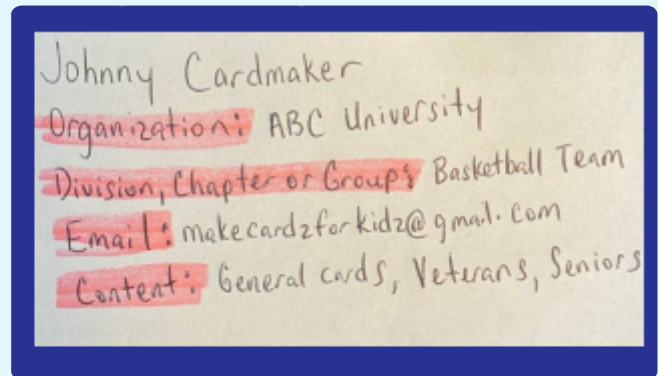 Johnny Cardmaker
Organization: ABC University
Division, Chapter or Group: Basketball Team
Email: makecardzforkidz@gmail.com
Content: General cards, Veterans, Seniors